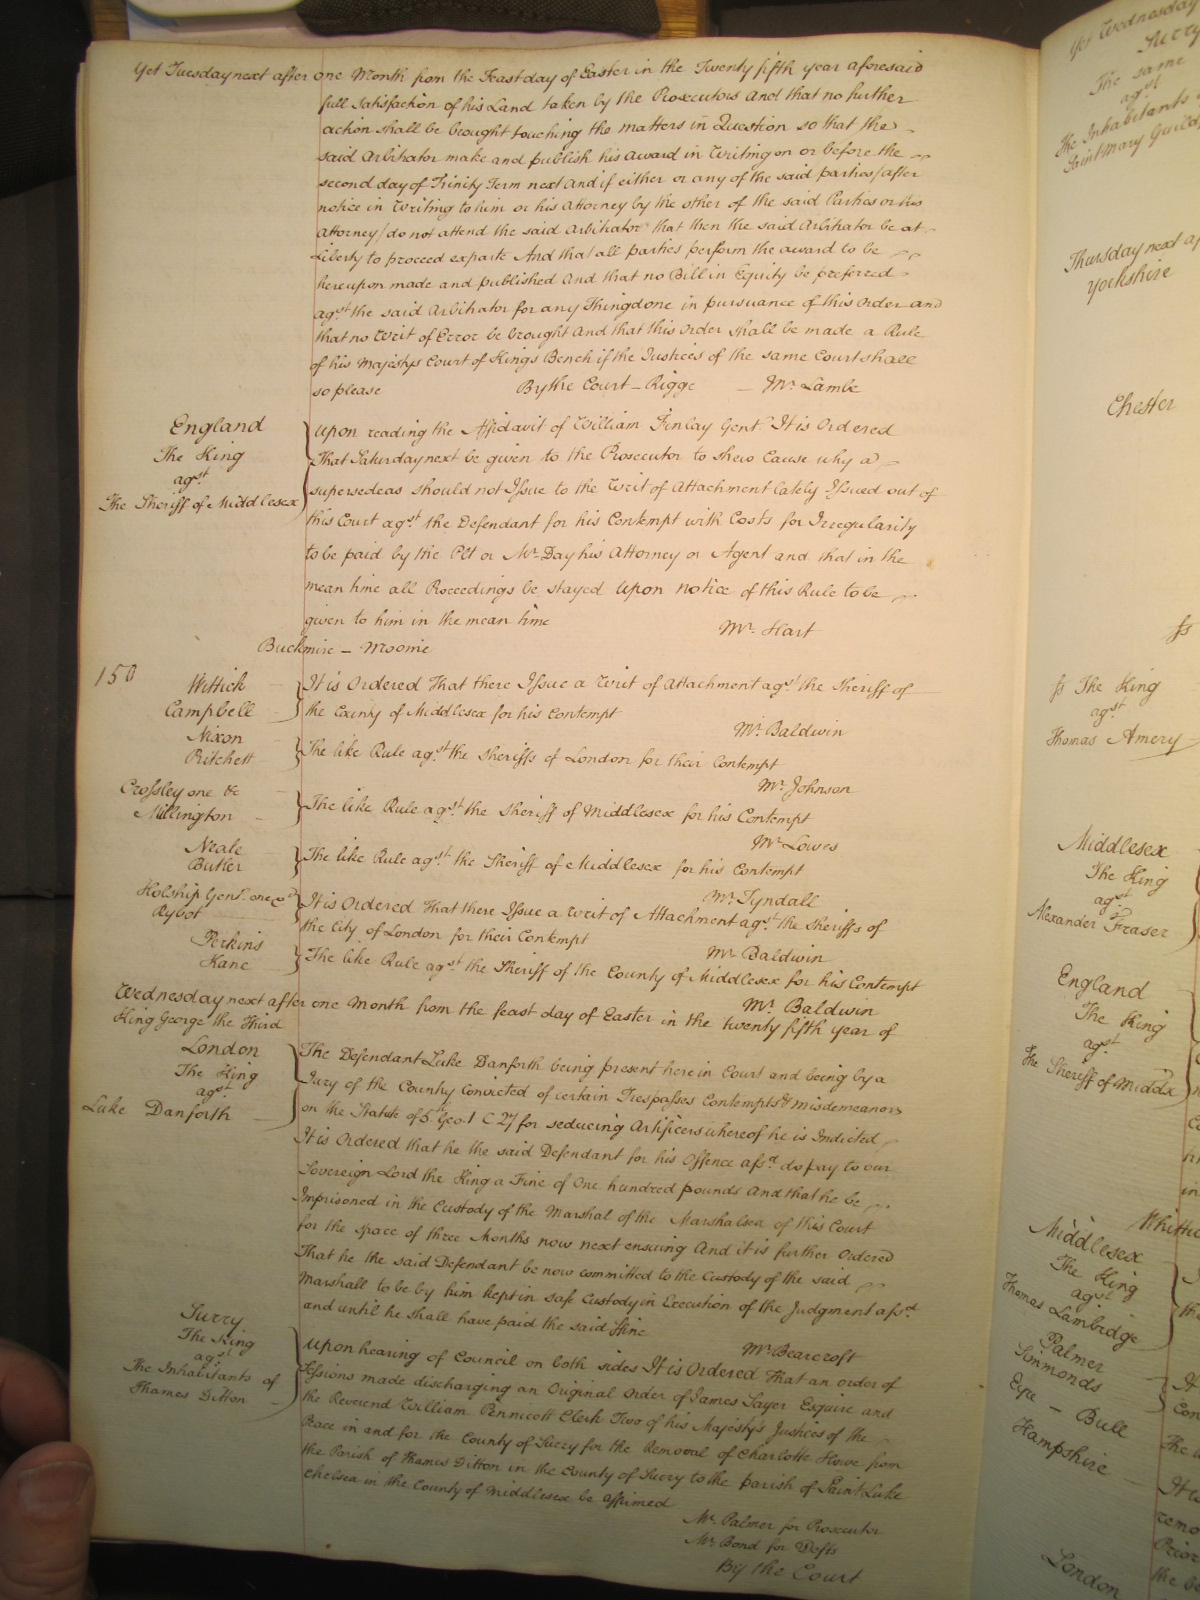 Yet Tuesday next after one Month from the Feast day of Easter in the Twenty fifth year aforesaid
full Satisfaction of his Land taken by the Prosecutors And that no further
action shall be brought touching the matters in Question so that the
said Arbitrator make and publish his award in Writing on or before the
second day of Trinity Term next And if either or any of the said parties (after
notice in Writing to him or his Attorney by the other of the said Parties or his
Attorney) do not attend the said Arbitrator that then the said Arbitrator be at
Liberty to proceed exparte And that all parties perform the award to be
hereupon made and published And that no Bill in Equity be preferred
agst the said Arbitrator for any Thing done in pursuance of this Order and
that no Writ of Error be brought And that this Order shall be made a Rule
of his Majestys Court of Kings Bench if the Justices of the same Court shall
so please By the Court – Rigge – Mr. Lambe
England
The King
agst
The Sheriff of Middlesex
Upon reading the Affidavit of William Finlay Gent. It is Ordered
That Saturday next be given to the Prosecutor to shew Cause why a
supersedeas should not Issue to the Writ of Attachment lately Issued out of
this Court agst the Defendant for his Contempt with Costs for Irregularity
to be paid by the Plt or Mr. Day his Attorney or Agent and that in the
mean time all Proceedings be stayed Upon notice of this Rule to be
given to him in the mean time
Mr. Hart
Buckmire – Moonie
150
Wittich
Campbell
It is Ordered That there Issue a Writ of Attachment agst the Sheriff of
the County of Middlesex for his Contempt
Mr. Baldwin
Nixon
Pritchett
The like Rule agst the Sheriffs of London for their Contempt
Mr. Johnson
Crossley one &c
Millington
The like Rule agst the Sheriff of Middlesex for his Contempt
Mr. Lowes
Neale
Butler
The like Rule agst the Sheriff of Middlesex for his Contempt
Mr. Tyndall
Holship Gent. one &c
Rybot
It is Ordered That there Issue a Writ of Attachment agst the Sheriffs of
the City of London for their Contempt
Mr. Baldwin
Perkins
Kane
The like Rule agst the Sheriff of the County of Middlesex for his Contempt
Mr. Baldwin
Wednesday next after one Month from the feast day of Easter in the twenty fifth year of
King George the Third
London
The King
agst
Luke Danforth
The Defendant Luke Danforth being present here in Court and being by a
Jury of the Country Convicted of certain Trespasses Contempts & misdemeanors
on the Statute of 5 Geo. 1 C. 27 for seducing Artificers whereof he is Indicted
It is Ordered that he the said Defendant for his Offence afsd do pay to our
Sovereign Lord the King a Fine of One hundred pounds And that he be
Imprisoned in the Custody of the Marshal of the Marshalsea of this Court
for the space of three Months now next ensuing And it is further Ordered
That he the said Defendant be now committed to the Custody of the said
Marshall to be by him kept in safe Custody in Execution of the Judgment afsd
and until he shall have paid the said Fine
Mr. Bearcroft
Surry
The King
agst
The Inhabitants of
Thames Ditton
Upon hearing of Council on both sides It is Ordered That an order of
Sessions made discharging an Original Order of James Sayer Esquire and
the Reverend William Pennicott Clerk Two of his Majesty's Justices of the
Peace in and for the County of Surry for the Removal of Charlotte Howe from
the Parish of Thames Ditton in the County of Surry to the parish of Saint Luke
Chelsea in the County of Middlesex be affirmed
Mr. Palmer for Prosecutor
Mr. Bond for Defts
By the Court
Yet Wednesday
Surry
The same
agst
The Inhabitants
Saint Mary Guild
Thursday next
Yorkshire
Chester
The King
agst
Thomas Amery
Middlesex
The King
agst
Alexander Fraser
England
The King
agst
The Sheriff of Middx
Middlesex
The King
agst
Thomas Lambidge
Palmer
Simmonds
Exp – Bull
Hampshire
London